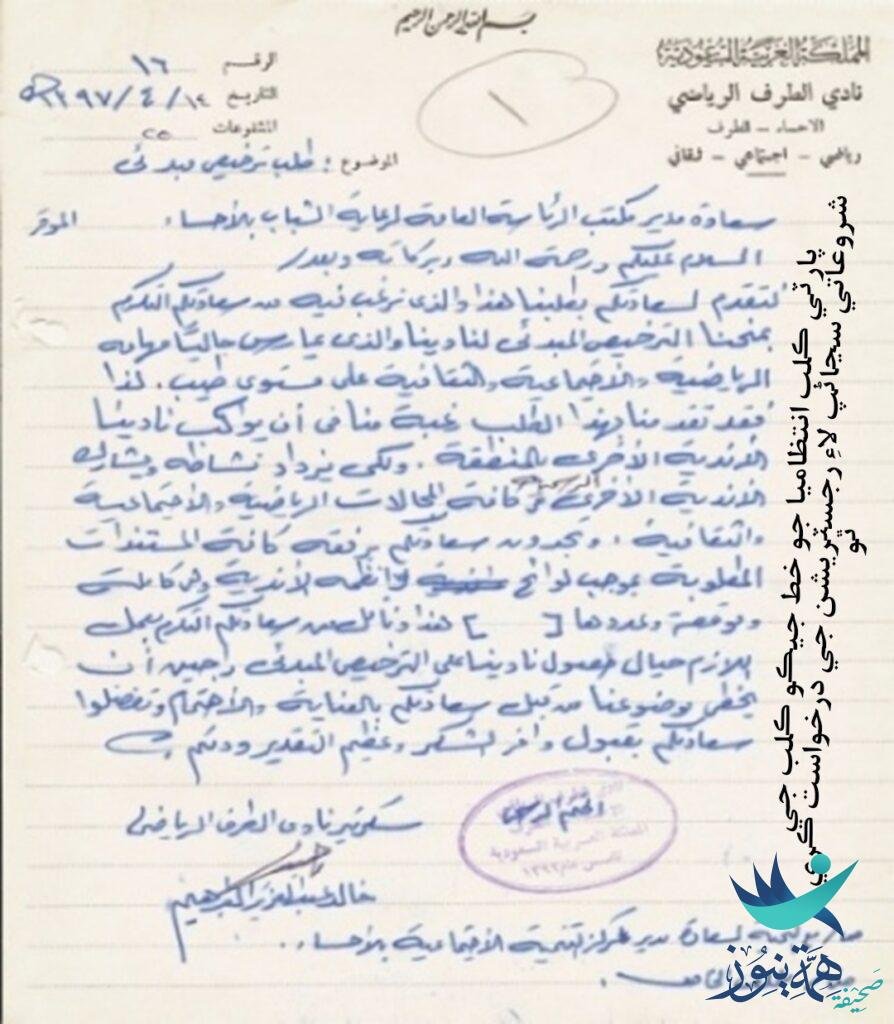 بسم الله الرحمن الرحيم
المملكة العربية السعودية
نادي الطرف الرياضي
الاحساء - الطرف
رياضي - اجتماعي - ثقافي
الرقم ١٦
التاريخ ١٤/٤/١٣٩٧هـ
المشفوعات
الموضوع : طلب ترخيص مبدئى
١
سعادة مدير مكتب الرئاسة العامة لرعاية الشباب بالأحساء الموقر
السلام عليكم ورحمة الله وبركاته وبعد /
نتقدم لسعادتكم بطلبنا هذا والذى نرغب فيه من سعادتكم التكرم
بمنحنا الترخيص المبدئى لنادينا والذى يمارس حاليًا مهامه
الرياضية والاجتماعية والثقافية على مستوى طيب . لذا
فقد تقدمنا بهذا الطلب رغبة منا فى أن يواكب نادينا
الأندية الأخرى بالمنطقة . ولكى يزداد نشاطه ويشارك
الأندية الأخرى فى كافة المجالات الرياضية والاجتماعية
والثقافية . وتجدون سعادتكم برفقه كافة المستندات
المطلوبة بموجب لوائح وأنظمة الأندية وهى كاملة
وموقعة وعددها [ ] هذا ونأمل من سعادتكم التكرم بعمل
اللازم حيال حصول نادينا على الترخيص المبدئى راجين أن
يحظى موضوعنا من قبل سعادتكم بالعناية والاهتمام وتفضلوا
سعادتكم بقبول وافر الشكر وعظيم التقدير ودمتم
سكرتير نادى الطرف الرياضى
الختم الرسمى
المملكة العربية السعودية
خالد عبدالعزيز البراهيم
لسعادة مدير مركز التنمية الاجتماعية بالأحساء . .
پارٽي ڪلب انتظاميا جو خط جيڪو ڪلب جي
شروعاتي سڃاڻپ لاءِ رجسٽريشن جي درخواست ڪري
ٿو
صحيفة
همة نيوز